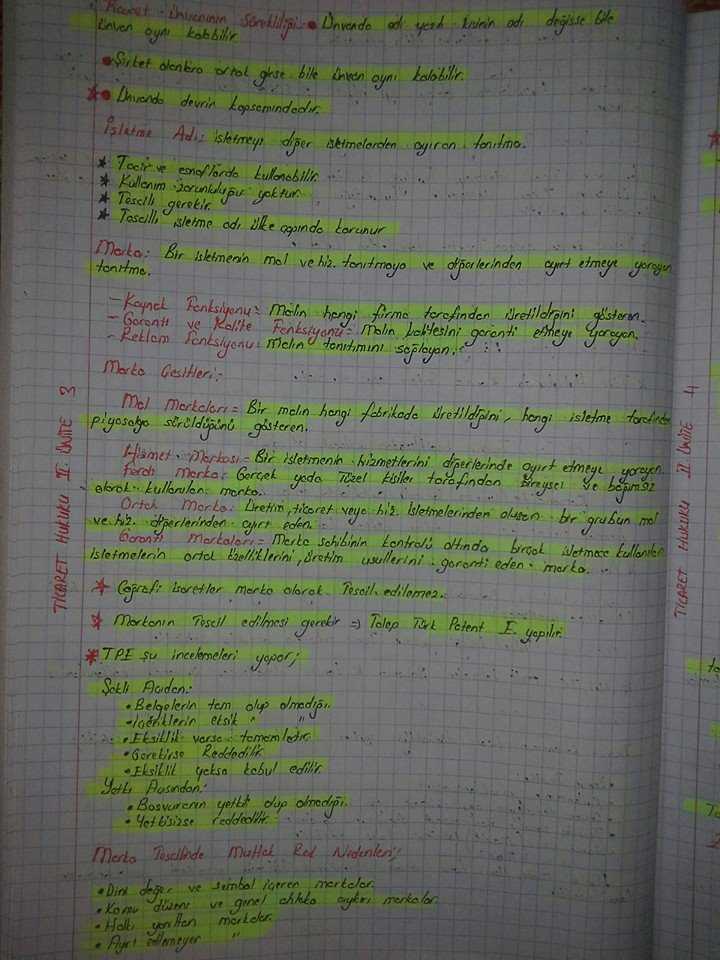 Ticaret Ünvanının Sürekliliği: • Ünvanda adı yazılı kişinin adı değişse bile
ünvan aynı kalabilir.
• Şirket olanlara ortak girse bile ünvan aynı kalabilir.
★ • Ünvanda devrin kapsamındadır.
İşletme Adı: işletmeyi diğer işletmelerden ayıran tanıtma.
★ Tacir ve esnaflarda kullanabilir.
★ Kullanım zorunluluğu yoktur.
★ Tescili gerekir.
★ Tescilli işletme adı ülke çapında korunur
Marka: Bir işletmenin mal ve hiz. tanıtmaya ve diğerlerinden ayırt etmeye yarayan
tanıtma.
- Kaynak Fonksiyonu = Malın hangi firma tarafından üretildiğini gösteren.
- Garanti ve Kalite Fonksiyonu = Malın kalitesini garanti etmeye yarayan.
- Reklam Fonksiyonu: Malın tanıtımını sağlayan.
Marka Çeşitleri:
Mal Markaları = Bir malın hangi fabrikada üretildiğini, hangi işletme tarafından
piyasaya sürüldüğünü gösteren.
Hizmet Markası = Bir işletmenin hizmetlerini diğerlerinde ayırt etmeye yarayan.
Ferdi Marka: Gerçek yada tüzel kişiler tarafından bireysel ve bağımsız
olarak kullanılan marka.
Ortak Marka: Üretim, ticaret veya hiz. işletmelerinden oluşan bir grubun mal
ve hiz. diğerlerinden ayırt eden.
Garanti Markaları = Marka sahibinin kontrolü altında birçok işletmece kullanılan
işletmelerin ortak özelliklerini, üretim usullerini garanti eden marka.
★ Coğrafi işaretler marka olarak Tescil edilemez.
★ Markanın Tescil edilmesi gerekir => Talep Türk Patent E. yapılır.
★ TPE şu incelemeleri yapar;
Şekli Açıdan:
• Belgelerin tam olup olmadığı.
• İçeriklerin eksik " "
• Eksiklik varsa tamamlatır.
• Gerekirse Reddedilir.
• Eksiklik yoksa kabul edilir.
Yetki Açısından:
• Başvuranın yetkili olup olmadığı.
• Yetkisizse reddedilir.
Marka Tescilinde Mutlak Red Nedenleri;
• Dini değer ve sembol içeren markalar.
• Kamu düzeni ve genel ahlaka aykırı markalar.
• Halkı yanıltan markalar.
• Ayırt edilemeyen "
TİCARET HUKUKU II. ÜNİTE 3
TİCARET HUKUKU II ÜNİTE 4